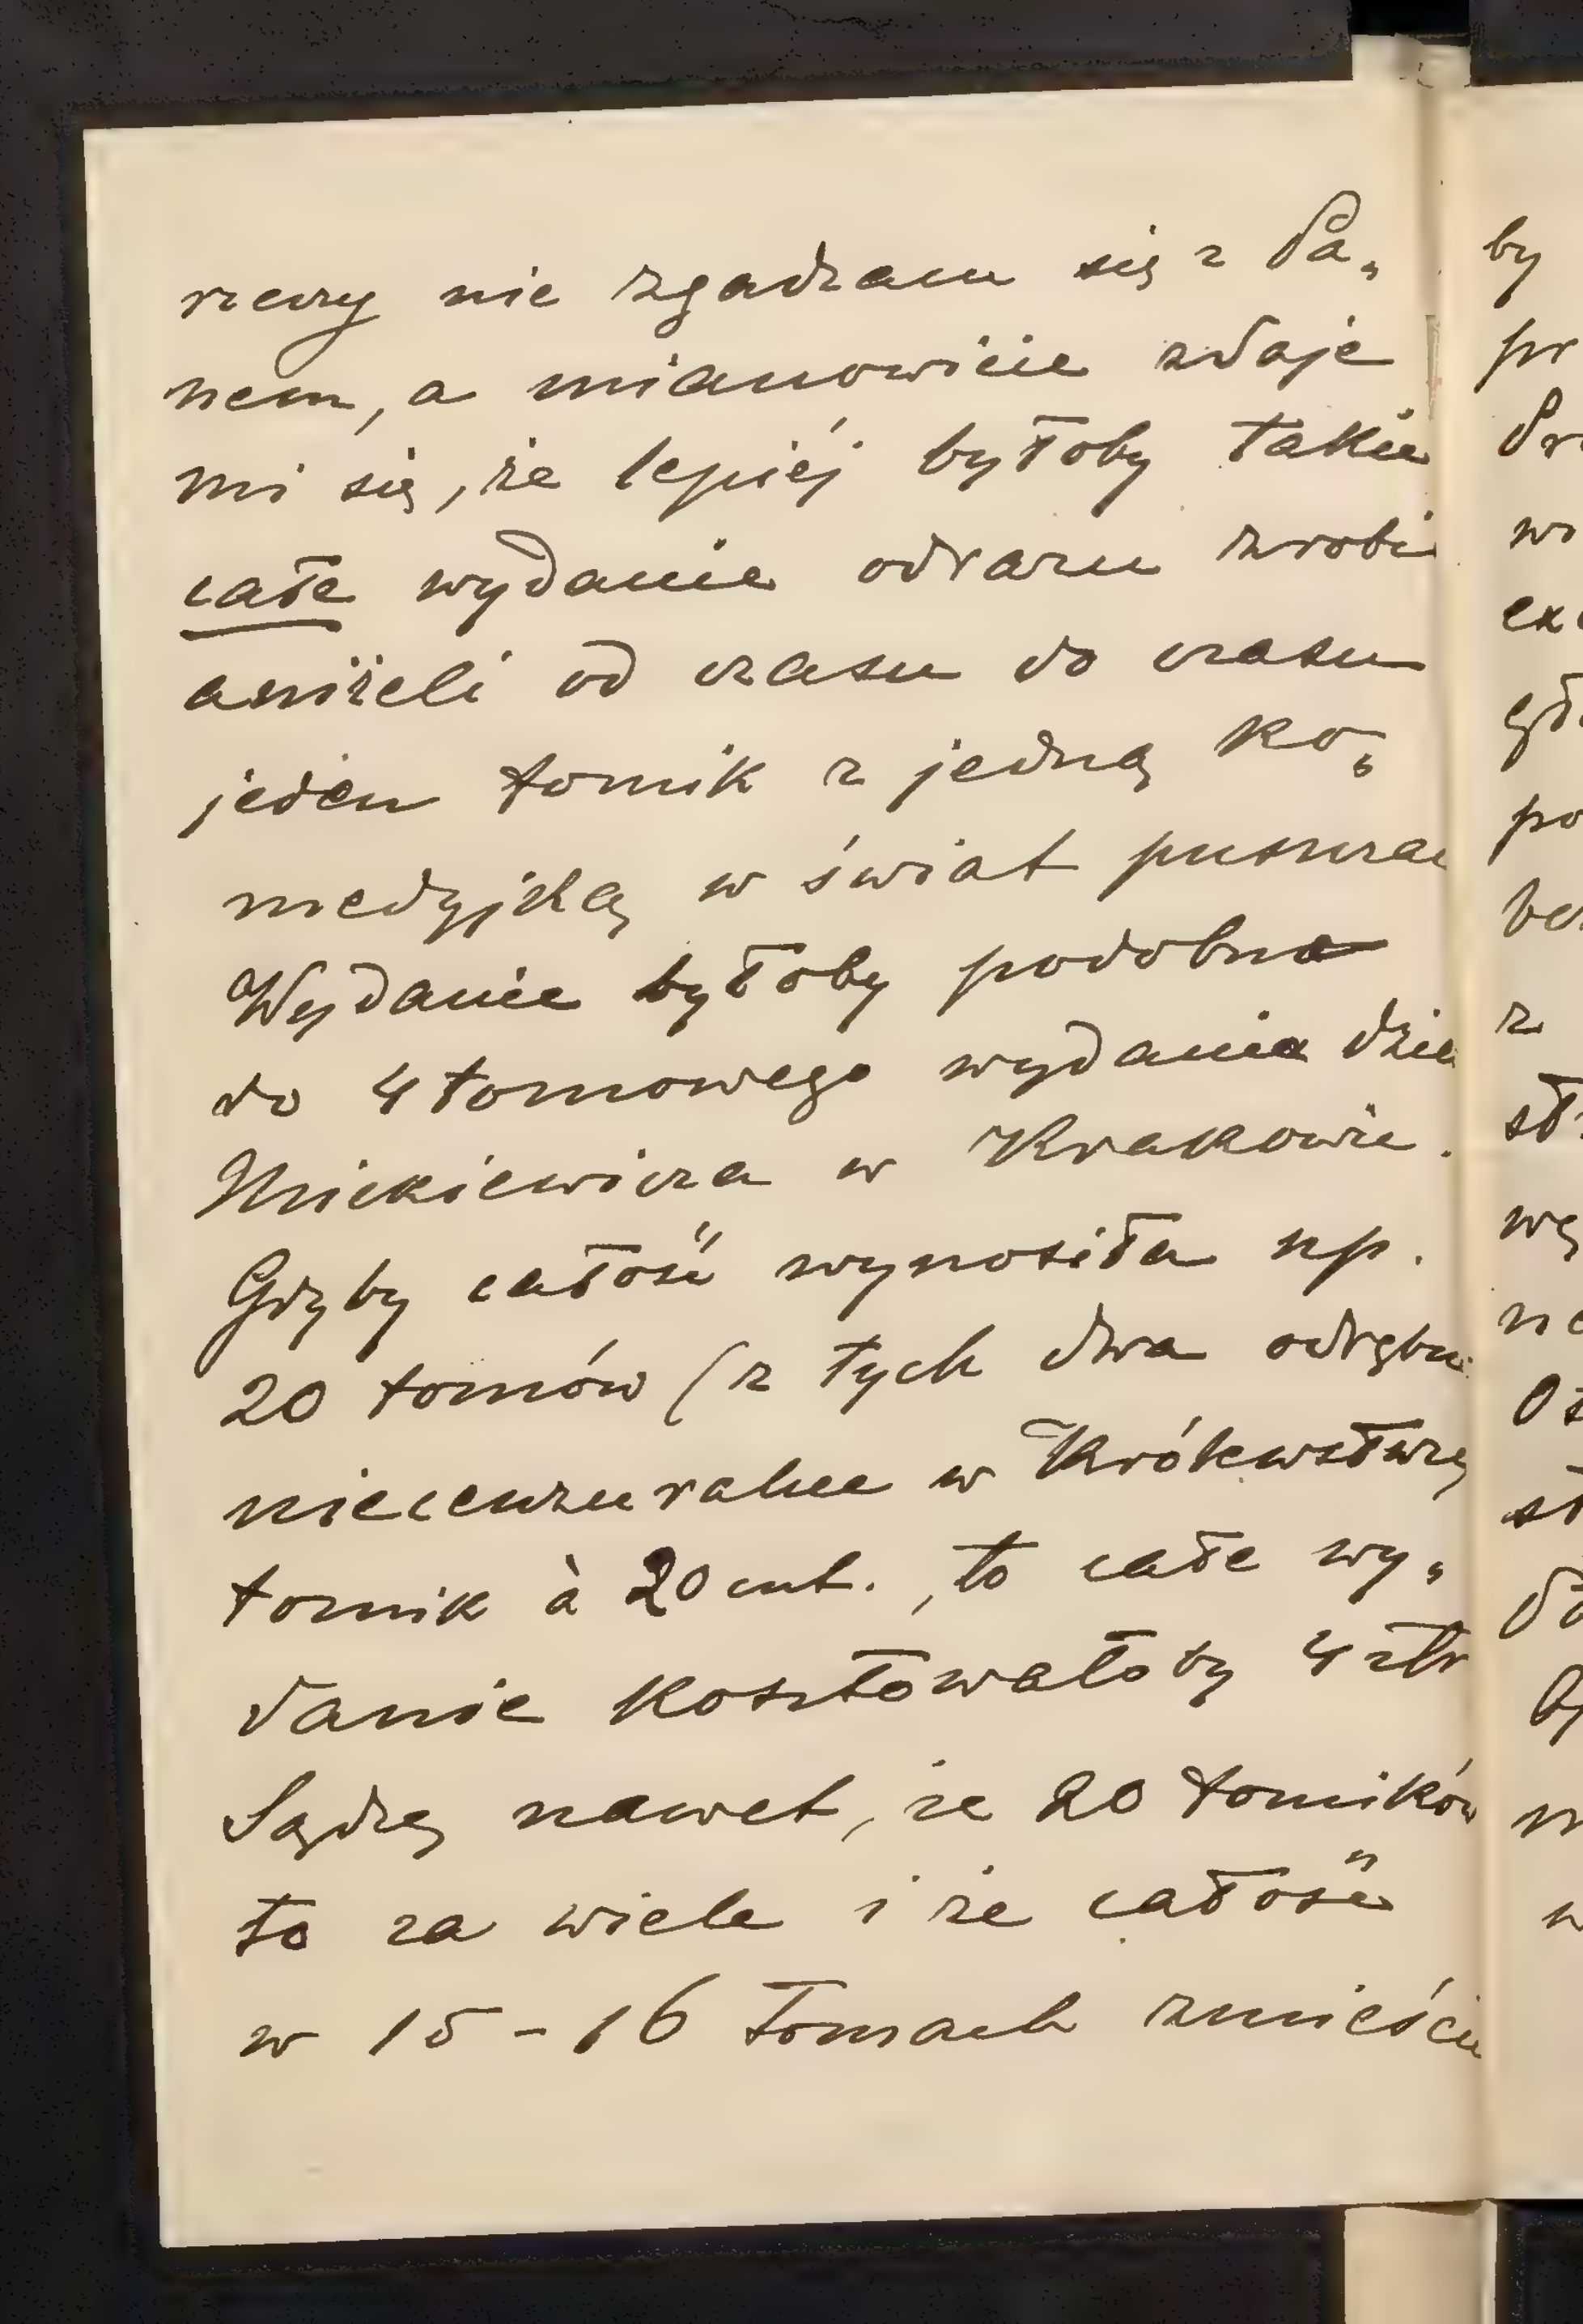 rzeczy nie zgadzam się z Pa„
nem, a mianowicie zdaje
mi się, że lepiéj byłoby takie
całe wydanie odrazu zrobić
aniżeli od czasu do czasu
jeden tomik z jedną ko„
medyjką w świat puszczać
Wydanie byłoby podobne
do 4 tomowego wydania dzieł
Mickiewicza w Krakowie.
Gdyby całość wynosiła np.
20 tomów (z tych dwa odrębne
niecenzuralne w Królewstwie
tomik à 20 cnt., to całe wy„
danie kosztowałoby 4 złr
Sądzę nawet, że 20 tomików
to za wiele i że całość
w 15-16 tomach zmieści
by
pr
wo
po
z